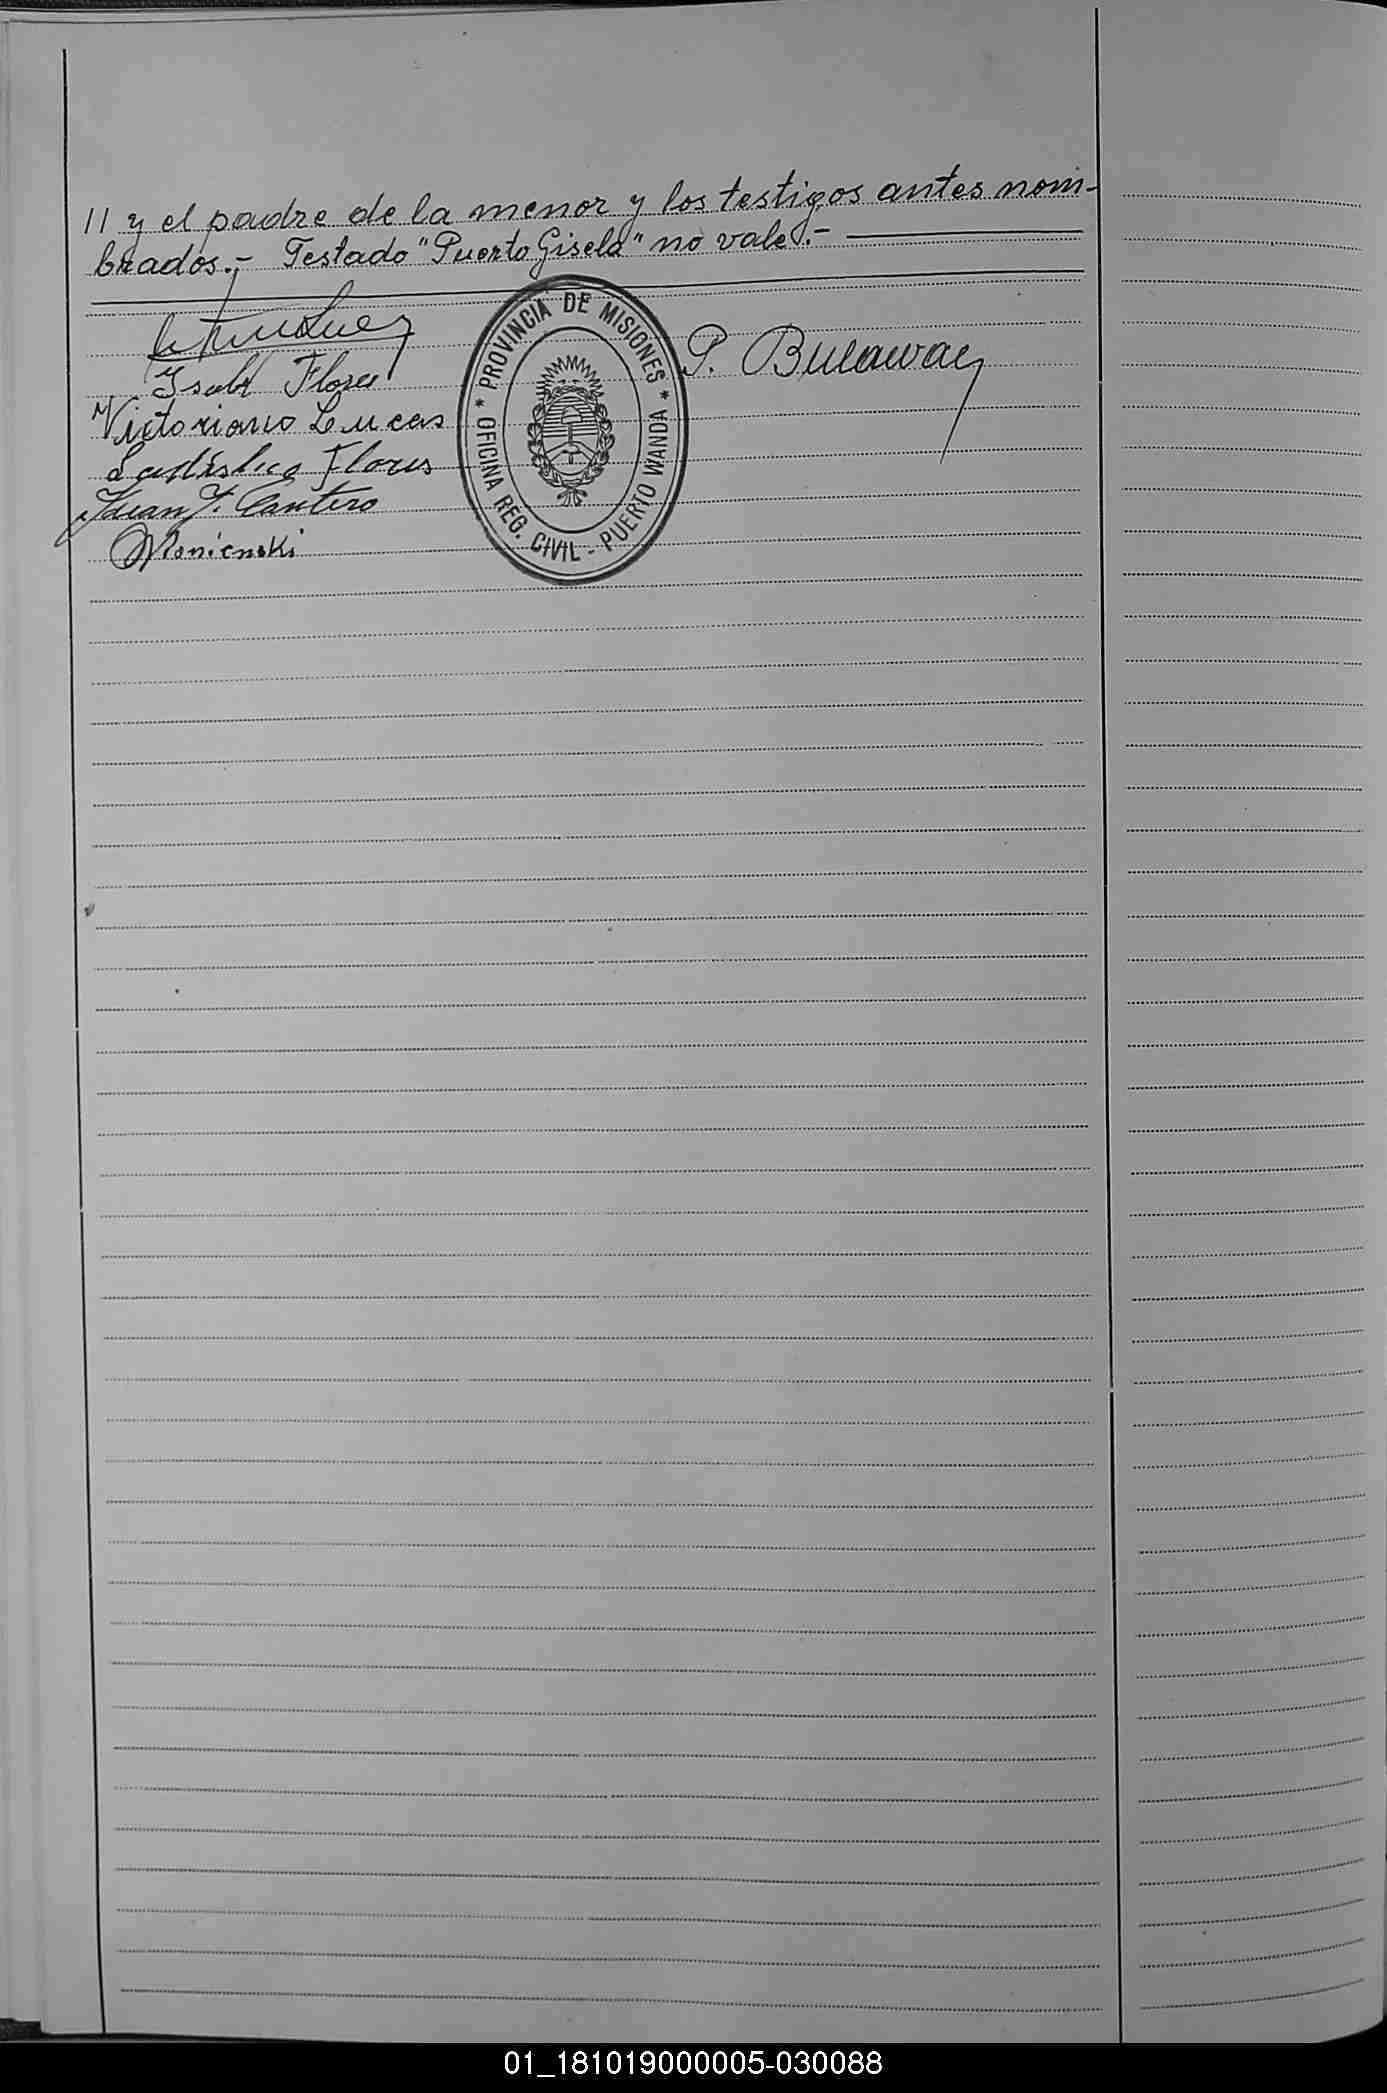 11 y el padre de la menor y los testigos antes nom-
brados.- Testado "Puerto Gisela" no vale.-
Isabel Flores
Victoriano Lucas
Flores
Juan J. Cantero
P. Bulaway
* PROVINCIA DE MISIONES *
OFICINA REG. CIVIL - PUERTO WANDA
01_181019000005-030088